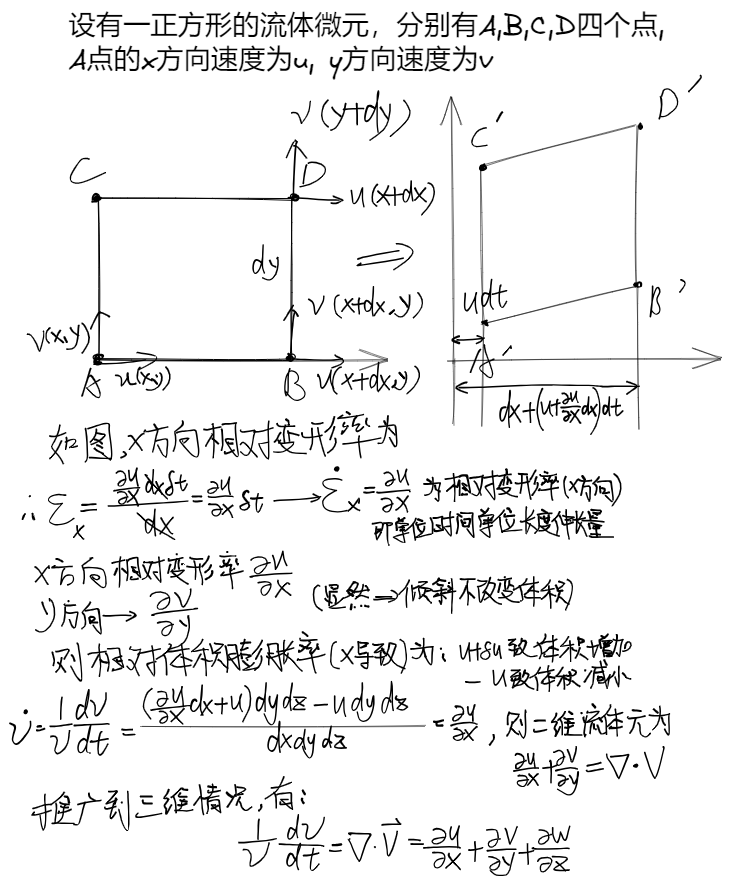 设有一正方形的流体微元，分别有A,B,C,D四个点，
A点的x方向速度为u，y方向速度为v
v(y+dy)
C
D
u(x+dx)
dy
v(x+dx,y)
v(x,y)
A
u(x,y)
B
u(x+dx,y)
⇒
C'
D'
udt
B'
A'
dx+(u+∂u/∂x dx)dt
如图,x方向相对变形率为
∴ ε_x = (∂u/∂x dx δt)/dx = ∂u/∂x δt → ε̇_x = ∂u/∂x 为相对变形率(x方向)
即单位时间单位长度伸长量
x方向相对变形率 ∂u/∂x
y方向→ ∂v/∂y (显然→倾斜不改变体积)
则相对体积膨胀率(x导致)为: u+δu致体积增加
- u致体积减小
v̇ = 1/v dv/dt = ((∂u/∂x dx+u)dydz - udydz)/(dxdydz) = ∂u/∂x , 则二维流体元为
∂u/∂x + ∂v/∂y = ∇·V
推广到三维情况,有:
1/v dv/dt = ∇·V⃗ = ∂u/∂x + ∂v/∂y + ∂w/∂z